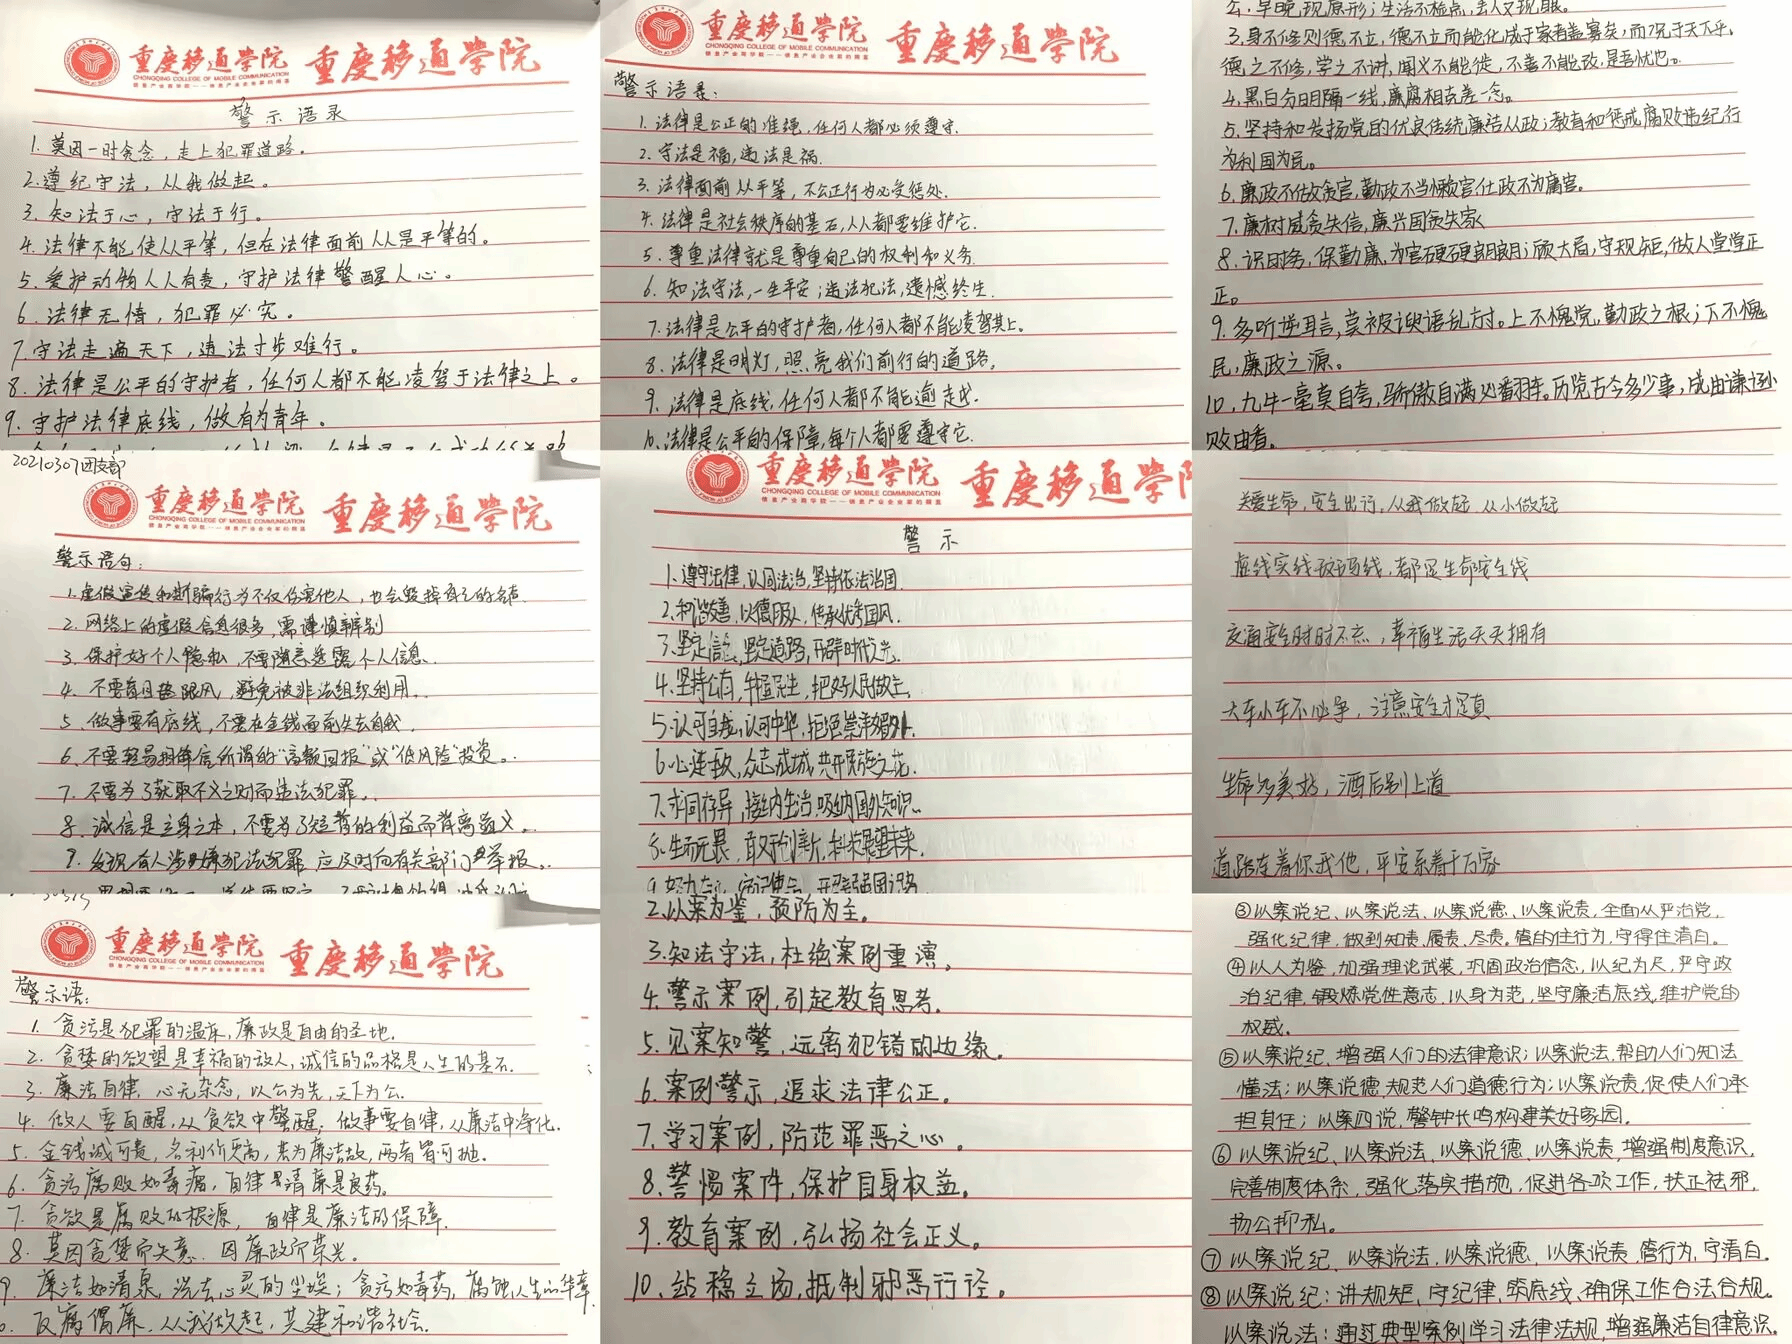 重庆移通学院
CHONGQING COLLEGE OF MOBILE COMMUNICATION
重庆移通学院
警示语录
1. 莫因一时贪念，走上犯罪道路。
2. 遵纪守法，从我做起。
3. 知法于心，守法于行。
4. 法律不能使人人平等，但在法律面前人人是平等的。
5. 爱护动物人人有责，守护法律警醒人心。
6. 法律无情，犯罪必究。
7. 守法走遍天下，违法寸步难行。
8. 法律是公平的守护者，任何人都不能凌驾于法律之上。
9. 守护法律底线，做有为青年。
重庆移通学院
CHONGQING COLLEGE OF MOBILE COMMUNICATION
重庆移通学院
警示语录：
1. 法律是公正的准绳，任何人都必须遵守.
2. 守法是福，违法是祸.
3. 法律面前人人平等，不公正行为必受惩处.
4. 法律是社会秩序的基石，人人都要维护它.
5. 尊重法律就是尊重自己的权利和义务.
6. 知法守法，一生平安；违法犯法，遗憾终生.
7. 法律是公平的守护者，任何人都不能凌驾其上。
8. 法律是明灯，照亮我们前行的道路.
9. 法律是底线，任何人都不能逾越.
10. 法律是公平的保障，每个人都要遵守它.
3. 身不修则德不立，德不立而能化成于家者盖寡矣，而况于天下乎。
德之不修，学之不讲，闻义不能徙，不善不能改，是吾忧也。
4. 黑白分明隔一线，廉腐相克差一念。
5. 坚持和发扬党的优良传统廉洁从政；教育和惩戒腐败违纪行
为利国为民。
6. 廉政不做贪官，勤政不当懒官仕政不为庸官。
7. 廉树威贪失信，廉兴国贪失家
8. 识时务，保勤廉，为官硬硬朗朗；顾大局，守规矩，做人堂堂正
正。
9. 多听逆耳言，莫被谀语乱方寸。上不愧党，勤政之根；下不愧
民，廉政之源。
10. 九牛一毫莫自夸，骄傲自满必翻车。历览古今多少事，成由谦逊
败由奢。
20210307团支部
重庆移通学院
CHONGQING COLLEGE OF MOBILE COMMUNICATION
重庆移通学院
警示语句：
1. 虚假宣传和欺骗行为不仅伤害他人，也会毁掉自己的名声.
2. 网络上的虚假信息很多，需谨慎辨别
3. 保护好个人隐私，不要随意透露个人信息.
4. 不要盲目跟风，避免被非法组织利用.
5. 做事要有底线，不要在金钱面前失去自我.
6. 不要轻易相信所谓的“高额回报”或“低风险”投资.
7. 不要为了获取不义之财而违法犯罪.
8. 诚信是立身之本，不要为了短暂的利益而背离道义.
9. 发现有人涉嫌犯法犯罪，应及时向有关部门举报.
重庆移通学院
CHONGQING COLLEGE OF MOBILE COMMUNICATION
重庆移通学
警示
1. 遵守法律，认同法治，坚持依法治国.
2. 和谐友善，以德服人，传承优秀国风.
3. 坚定信念，坚定道路，开辟时代之光.
4. 坚持公有，民生，把好人民做主.
5. 认可自我，认可中华，拒绝崇洋媚外.
6. 心连手，众志成城，共开民族之花.
7. 求同存异，吸纳国外知识.
8. 生而无畏，敢于创新，科技展望未来.
关爱生命，安全出行，从我做起，从小做起
虚线实线斑马线，都是生命安全线
交通安全时时不忘，幸福生活天天拥有
大车小车不必争，注意安全才是真
生命多美好，酒后别上道
道路连着你我他，平安系着千万家
重庆移通学院
CHONGQING COLLEGE OF MOBILE COMMUNICATION
重庆移通学院
警示语：
1. 贪污是犯罪的温床，廉政是自由的圣地.
2. 贪婪的欲望是幸福的敌人，诚信的品格是人生的基石.
3. 廉洁自律，心无杂念，以公为先，天下为公.
4. 做人要自醒，从贪欲中警醒；做事要自律，从廉洁中净化.
5. 金钱诚可贵，名利价更高，若为廉洁故，两者皆可抛.
6. 贪污腐败如毒瘤，自律清廉是良药。
7. 贪欲是腐败的根源，自律是廉洁的保障.
8. 莫因贪婪而失意，因廉政而荣光。
9. 廉洁如清泉，洗去心灵的尘埃；贪污如毒药，腐蚀人生的华章.
反腐倡廉，从我做起，共建和谐社会.
2. 以案为鉴，预防为主。
3. 知法守法，杜绝案例重演。
4. 警示案例，引起教育思考。
5. 见案知警，远离犯错的边缘。
6. 案例警示，追求法律公正。
7. 学习案例，防范罪恶之心。
8. 警惕案件，保护自身权益。
9. 教育案例，弘扬社会正义。
10. 站稳立场，抵制邪恶行径。
③以案说纪、以案说法、以案说德、以案说责，全面从严治党，
强化纪律，做到知责、履责、尽责。管的住行为，守得住清白。
④以人为鉴，加强理论武装，巩固政治信念，以纪为尺，严守政
治纪律，锻炼党性意志，以身为范，坚守廉洁底线，维护党的
权威。
⑤以案说纪，增强人们的法律意识；以案说法，帮助人们知法
懂法；以案说德，规范人们道德行为；以案说责，促使人们承
担责任；以案四说，警钟长鸣构建美好家园。
⑥以案说纪、以案说法、以案说德、以案说责，增强制度意识，
完善制度体系，强化落实措施，促进各项工作，扶正祛邪，
扬公抑私。
⑦以案说纪、以案说法、以案说德、以案说责，管行为，守清白。
⑧以案说纪：讲规矩，守纪律，筑底线，确保工作合法合规。
以案说法：通过典型案例学习法律法规，增强廉洁自律意识。